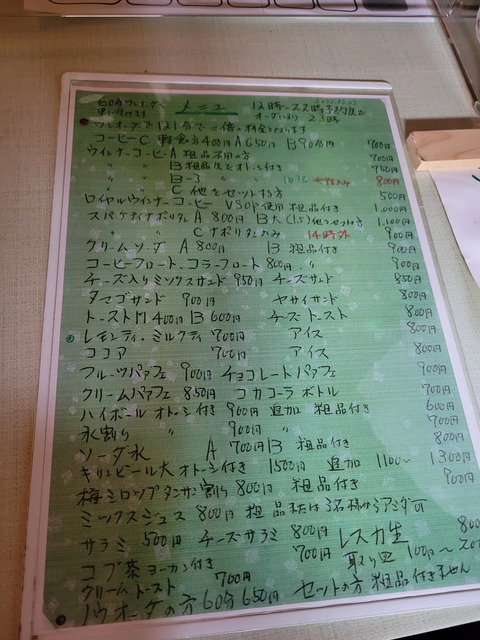 メニュー
60分ワンオーダー 12時〜22時
ワンオーダーで121分で二倍の料金となります
コーヒーC 軽食の方400円 A 650円 B 90分円 700円
ウインナーコーヒーA 粗品不用の方 700円
〃 B 粗品 オトーシ付き 750円
〃 B-3 800円
〃 C 他とセットする方 500円
ロイヤルウインナーコーヒー VSOP使用 粗品付き 1,000円
スパゲティナポリタンA 800円 B大(1.5)他とセットの方 1,100円
〃 Cナポリタンのみ 14時外 900円
クリームソーダ A 800円 B 粗品付き 900円
コーヒーフロート、コーラフロート 800円 〃 900円
チーズ入りミックスサンド 950円 チーズサンド 850円
タマゴサンド 900円 ヤサイサンド 800円
トーストM 400円 B 600円 チーズトースト 800円
レモンティ、ミルクティ 700円 アイス 800円
ココア 700円 アイス 800円
フルーツパフェ 900円 チョコレートパフェ 900円
クリームパフェ 850円 コカコーラボトル 700円
ハイボール オトーシ付き 900円 追加 粗品付き 600円
水割り 〃 900円 〃 700円
ソーダ水 A 700円 B 粗品付き 800円
キリンビール大 オトーシ付き 1500円 追加 1100〜 1300円
梅シロップタンサン割り 800円 粗品付き 900円
ミックスジュース 800円 粗品
サラミ 500円 チーズサラミ 800円 レスカ生 800
コブ茶ヨーカン付き 700円 取り皿 100円〜200
クリームトースト 700円
ノウオーダの方 60分 650円 セットの方 粗品付きません